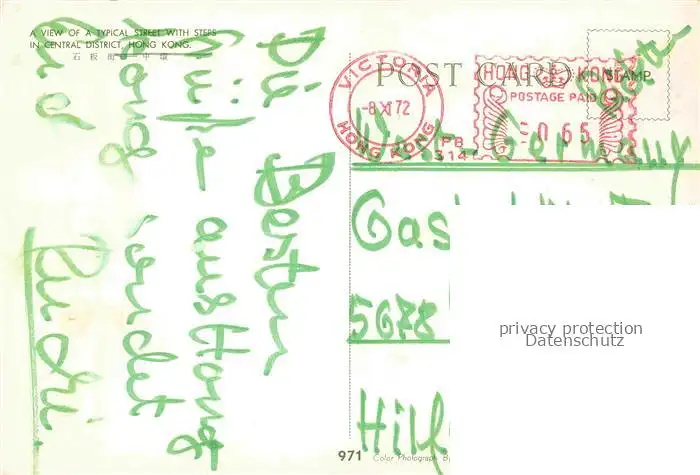 A VIEW OF A TYPICAL STREET WITH STEPS
IN CENTRAL DISTRICT, HONG KONG.
石板街 — 中環
POST CARD
STAMP
VICTORIA
-8 XI 72
HONG KONG
PB
314
HONG KONG
POSTAGE PAID
0 65
Die Besten
Grüße aus Hong
Kong sendet
Rudi.
West-Germany
Gas
5678
Hilf
privacy protection
Datenschutz
971 Color Photograph B